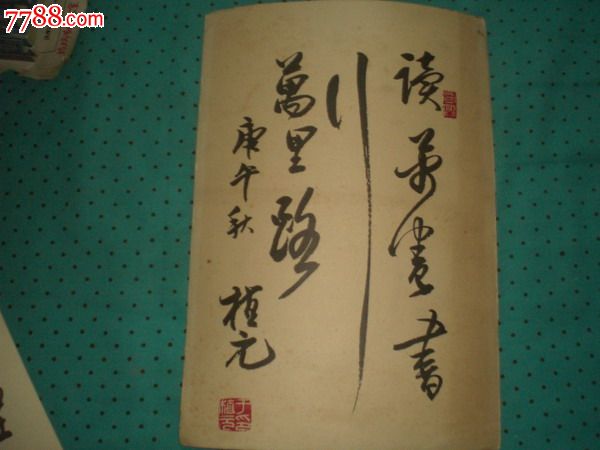 7788.com
讀萬卷書
行
萬里路
庚午秋
植元